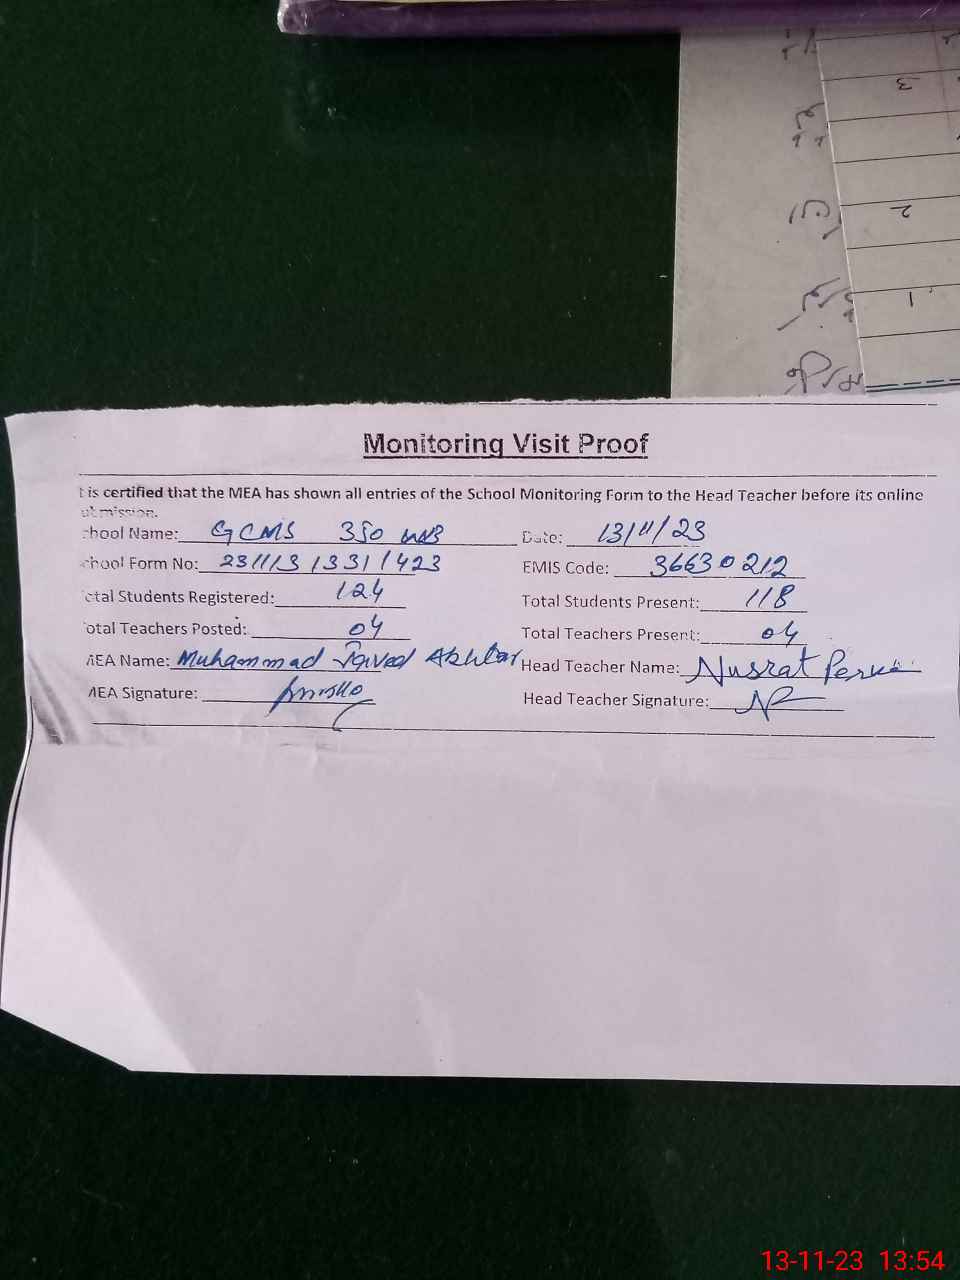 Monitoring Visit Proof
t is certified that the MEA has shown all entries of the School Monitoring Form to the Head Teacher before its online
ubmission.
chool Name: GCMS 350 WB Date: 13/11/23
chool Form No: 231113 1331 1423 EMIS Code: 36630212
otal Students Registered: 124 Total Students Present: 118
otal Teachers Posted: 04 Total Teachers Present: 04
MEA Name: Muhammad Javed Akhtar Head Teacher Name: Nusrat
MEA Signature: Head Teacher Signature:
3
2
1
13-11-23 13:54